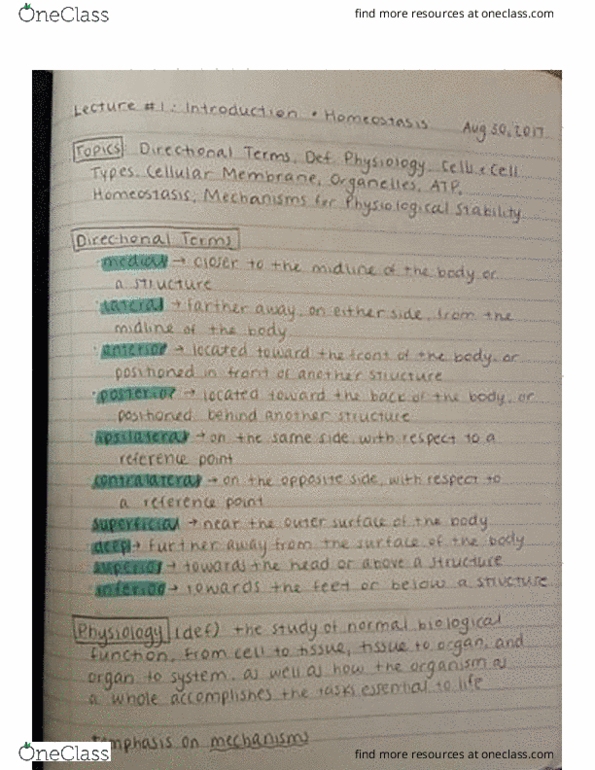 OneClass
find more resources at oneclass.com
Lecture #1: Introduction • Homeostasis Aug 30, 2017
Topics: Directional Terms, Def. Physiology, Cells & Cell
Types, Cellular Membrane, Organelles, ATP,
Homeostasis, Mechanisms for Physiological Stability
Directional Terms
· medial → closer to the midline of the body or
a structure
· lateral → farther away, on either side, from the
midline of the body
· anterior → located toward the front of the body, or
positioned in front of another structure
· posterior → located toward the back of the body, or
positioned behind another structure
ipsilateral → on the same side, with respect to a
reference point
contralateral → on the opposite side, with respect to
a reference point
superficial → near the outer surface of the body
deep → further away from the surface of the body
superior → towards the head or above a structure
inferior → towards the feet or below a structure
Physiology (def) the study of normal biological
function, from cell to tissue, tissue to organ, and
organ to system, as well as how the organism as
a whole accomplishes the tasks essential to life
emphasis on mechanisms
OneClass
find more resources at oneclass.com